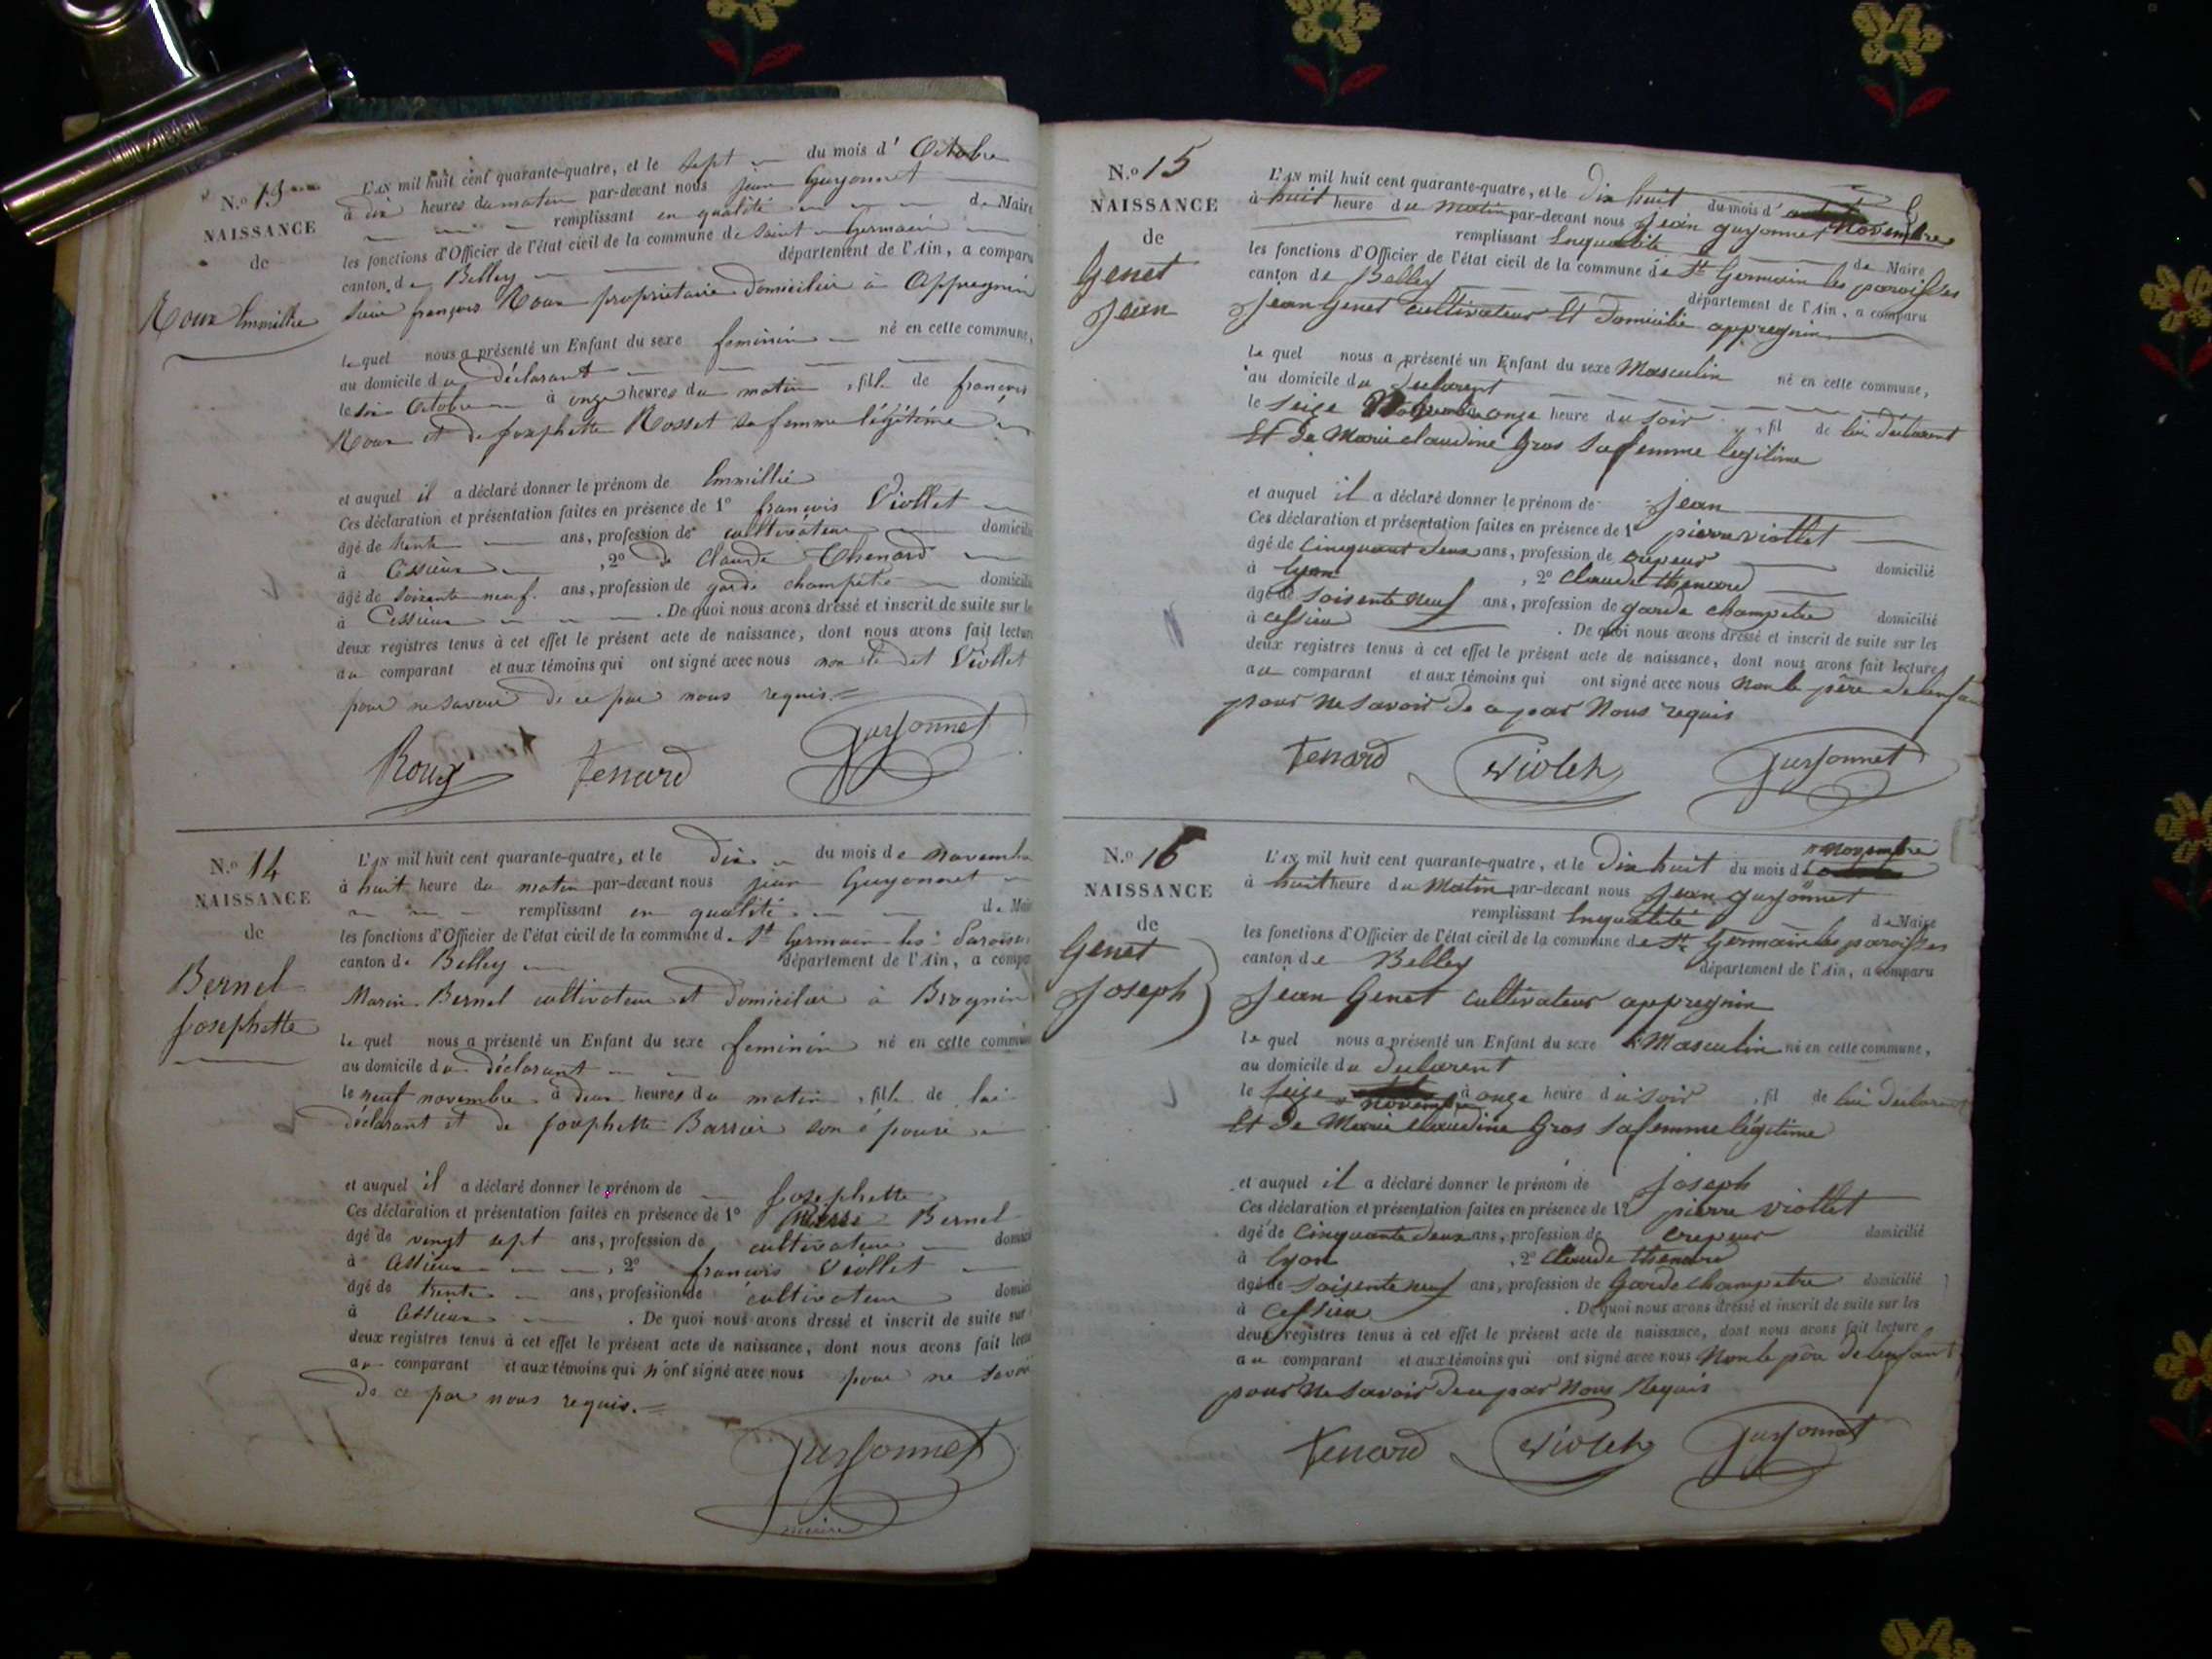 N.º 13
NAISSANCE
de
Roux Emmillie
L'AN mil huit cent quarante-quatre, et le sept du mois d' Octobre
à dix heures du matin par-devant nous jean Guyonnet
remplissant en qualité de Maire
les fonctions d'Officier de l'état civil de la commune de saint Germain
canton de Belley département de l'Ain, a comparu
françois Roux propriétaire domicilier à Appregnin
le quel nous a présenté un Enfant du sexe feminin né en cette commune,
au domicile du déclarant
le six Octobre à onze heures du matin, fille de françois
Roux et de josephette Rosset sa femme légitime
et auquel il a déclaré donner le prénom de Emmillie
Ces déclaration et présentation faites en présence de 1º françois Viollet
âgé de trente ans, profession de cultivateur domicilié
à Cessieux, 2º de Claude Thenard
âgé de soixante neuf ans, profession de garde champetre domicilié
à Cessieux. De quoi nous avons dressé et inscrit de suite sur les
deux registres tenus à cet effet le présent acte de naissance, dont nous avons fait lecture
au comparant et aux témoins qui ont signé avec nous non le dit Viollet
pour ne savoir de ce par nous requis.
Roux Tenard Guyonnet
N.º 14
NAISSANCE
de
Bernel
Josephette
L'AN mil huit cent quarante-quatre, et le dix du mois de novembre
à huit heure du matin par-devant nous jean Guyonnet
remplissant en qualité de Maire
les fonctions d'Officier de l'état civil de la commune de St Germain les Paroisses
canton de Belley département de l'Ain, a comparu
Marin Bernel cultivateur et domicilier à Brognin
le quel nous a présenté un Enfant du sexe feminin né en cette commune
au domicile du déclarant
le neuf novembre à deux heures du matin, fille de lui
déclarant et de josephette Barrier son épouse
et auquel il a déclaré donner le prénom de Josephette
Ces déclaration et présentation faites en présence de 1º Bernel
âgé de vingt sept ans, profession de cultivateur domicilié
à Cessieux, 2º françois Viollet
âgé de trente ans, profession de cultivateur domicilié
à Cessieux. De quoi nous avons dressé et inscrit de suite sur
deux registres tenus à cet effet le présent acte de naissance, dont nous avons fait lecture
au comparant et aux témoins qui n'ont signé avec nous pour ne savoir
de ce par nous requis.
Guyonnet
maire
N.º 15
NAISSANCE
de
Genet
Jean
L'AN mil huit cent quarante-quatre, et le Dix huit du mois d' Novembre
à huit heure du Matin par-devant nous Jean guyonnet
remplissant Enqualité de Maire
les fonctions d'Officier de l'état civil de la commune de St Germain les paroisses
canton de Belley département de l'Ain, a comparu
Jean Genet cultivateur Et Domicilié appregnin
le quel nous a présenté un Enfant du sexe Masculin né en cette commune,
au domicile du Declarent
le seize Novembre onze heure du soir, fil de lui Declarent
Et De Marie claudine Gros sa femme legitime
et auquel il a déclaré donner le prénom de Jean
Ces déclaration et présentation faites en présence de 1º pierre viollet
âgé de Cinquante deux ans, profession de crepeur domicilié
à Lyon, 2º Claude thenard
âgé de soisente neuf ans, profession de garde champetre domicilié
à cessieu. De quoi nous avons dressé et inscrit de suite sur les
deux registres tenus à cet effet le présent acte de naissance, dont nous avons fait lecture
au comparant et aux témoins qui ont signé avec nous Non le père de lenfant
pour Ne savoir De ce par Nous requis
Tenard Violet Guyonnet
N.º 16
NAISSANCE
de
Genet
Joseph
L'AN mil huit cent quarante-quatre, et le Dix huit du mois d novembre
à huit heure du Matin par-devant nous Jean guyonnet
remplissant Enqualité de Maire
les fonctions d'Officier de l'état civil de la commune de St Germain les paroisses
canton de Belley département de l'Ain, a comparu
Jean Genet Cultivateur appregnin
le quel nous a présenté un Enfant du sexe Masculin né en cette commune,
au domicile du Declarent
le seize novembre à onze heure du soir, fil de lui Declarent
Et De Marie Claudine Gros sa femme légitime
et auquel il a déclaré donner le prénom de Joseph
Ces déclaration et présentation faites en présence de 1º pierre viollet
âgé de Cinquante deux ans, profession de crepeur domicilié
à Lyon, 2º Claude thenard
âgé de soisente neuf ans, profession de Garde champetre domicilié
à cessieu. De quoi nous avons dressé et inscrit de suite sur les
deux registres tenus à cet effet le présent acte de naissance, dont nous avons fait lecture
au comparant et aux témoins qui ont signé avec nous Non le père de lenfant
pour Ne savoir De ce par Nous Requis
Tenard Violet Guyonnet